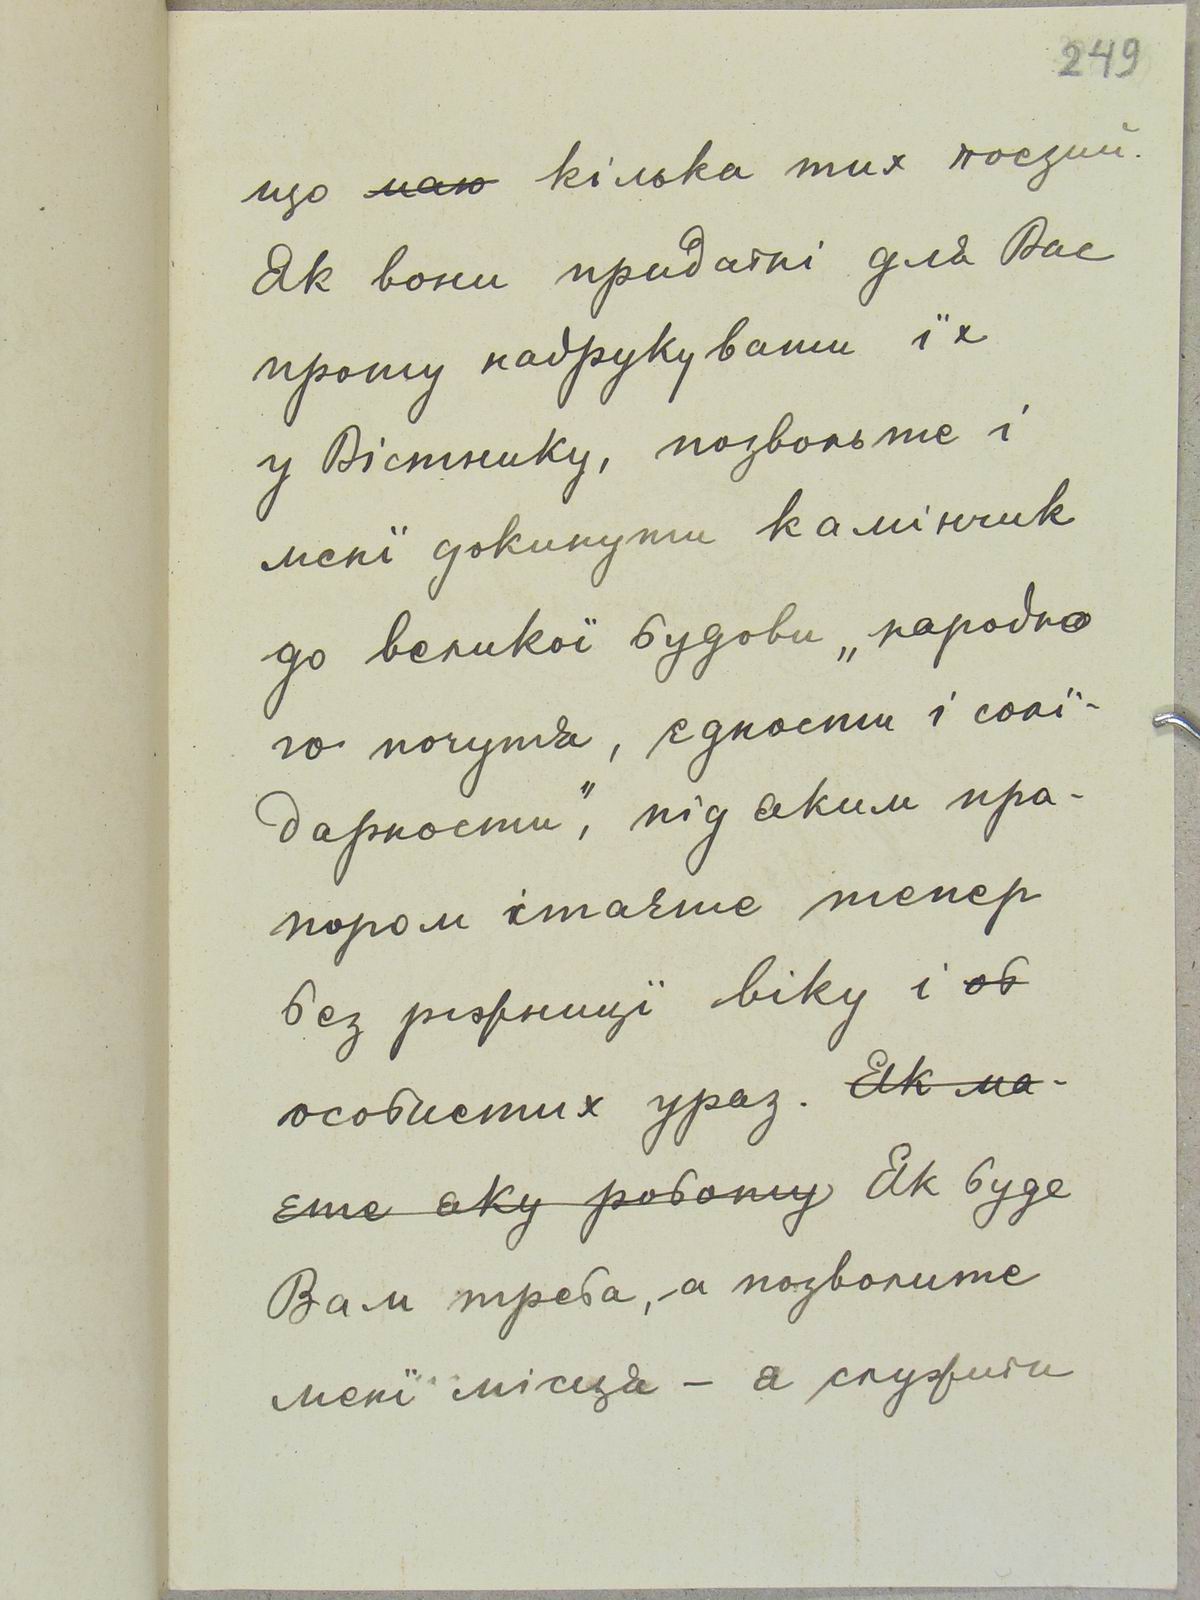 249
що ~~маю~~ кілька тих поезий.
Як вони придатні для Вас
прошу надрукувати їх
у Вістнику, позвольте і
мені докинути камінчик
до великої будови „народно
го почутя, єдности і солї-
дарности”, під яким пра-
пором істаєте тепер
без ріжницї віку і ~~об~~
особистих ураз. ~~Як ма-~~
~~єте яку роботу~~ Як буде
Вам треба, а позволите
менї місця – я служити